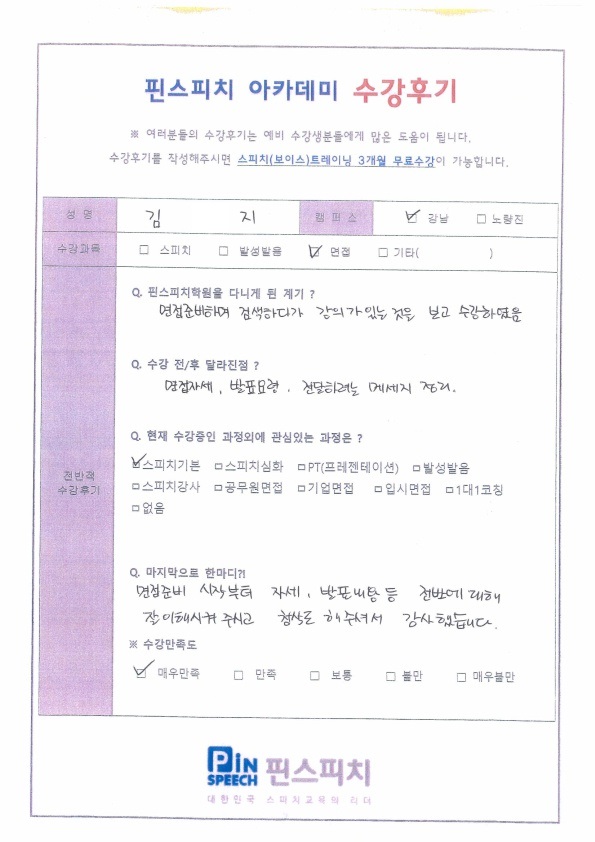 핀스피치 아카데미 수강후기
※ 여러분들의 수강후기는 예비 수강생분들에게 많은 도움이 됩니다.
수강후기를 작성해주시면 스피치(보이스)트레이닝 3개월 무료수강이 가능합니다.
성 명 김 지 캠퍼스 ☑ 강남 □ 노량진
수강과목 □ 스피치 □ 발성발음 ☑ 면접 □ 기타( )
Q. 핀스피치학원을 다니게 된 계기 ?
면접준비하며 검색하다가 강의가 있는 것을 보고 수강하였음
Q. 수강 전/후 달라진점 ?
면접자세, 발표요령, 전달하려는 메세지 정리.
Q. 현재 수강중인 과정외에 관심있는 과정은 ?
☑스피치기본 □스피치심화 □PT(프레젠테이션) □발성발음
전반적
수강후기
□스피치강사 □공무원면접 □기업면접 □입시면접 □1대1코칭
□없음
Q. 마지막으로 한마디?!
면접준비 시작부터 자세, 발표내용 등 전반에 대해
잘 이해시켜 주시고 첨삭도 해주셔서 감사했습니다.
※ 수강만족도
☑ 매우만족 □ 만족 □ 보통 □ 불만 □ 매우불만
PiN
SPEECH 핀스피치
대한민국 스피치교육의 리더